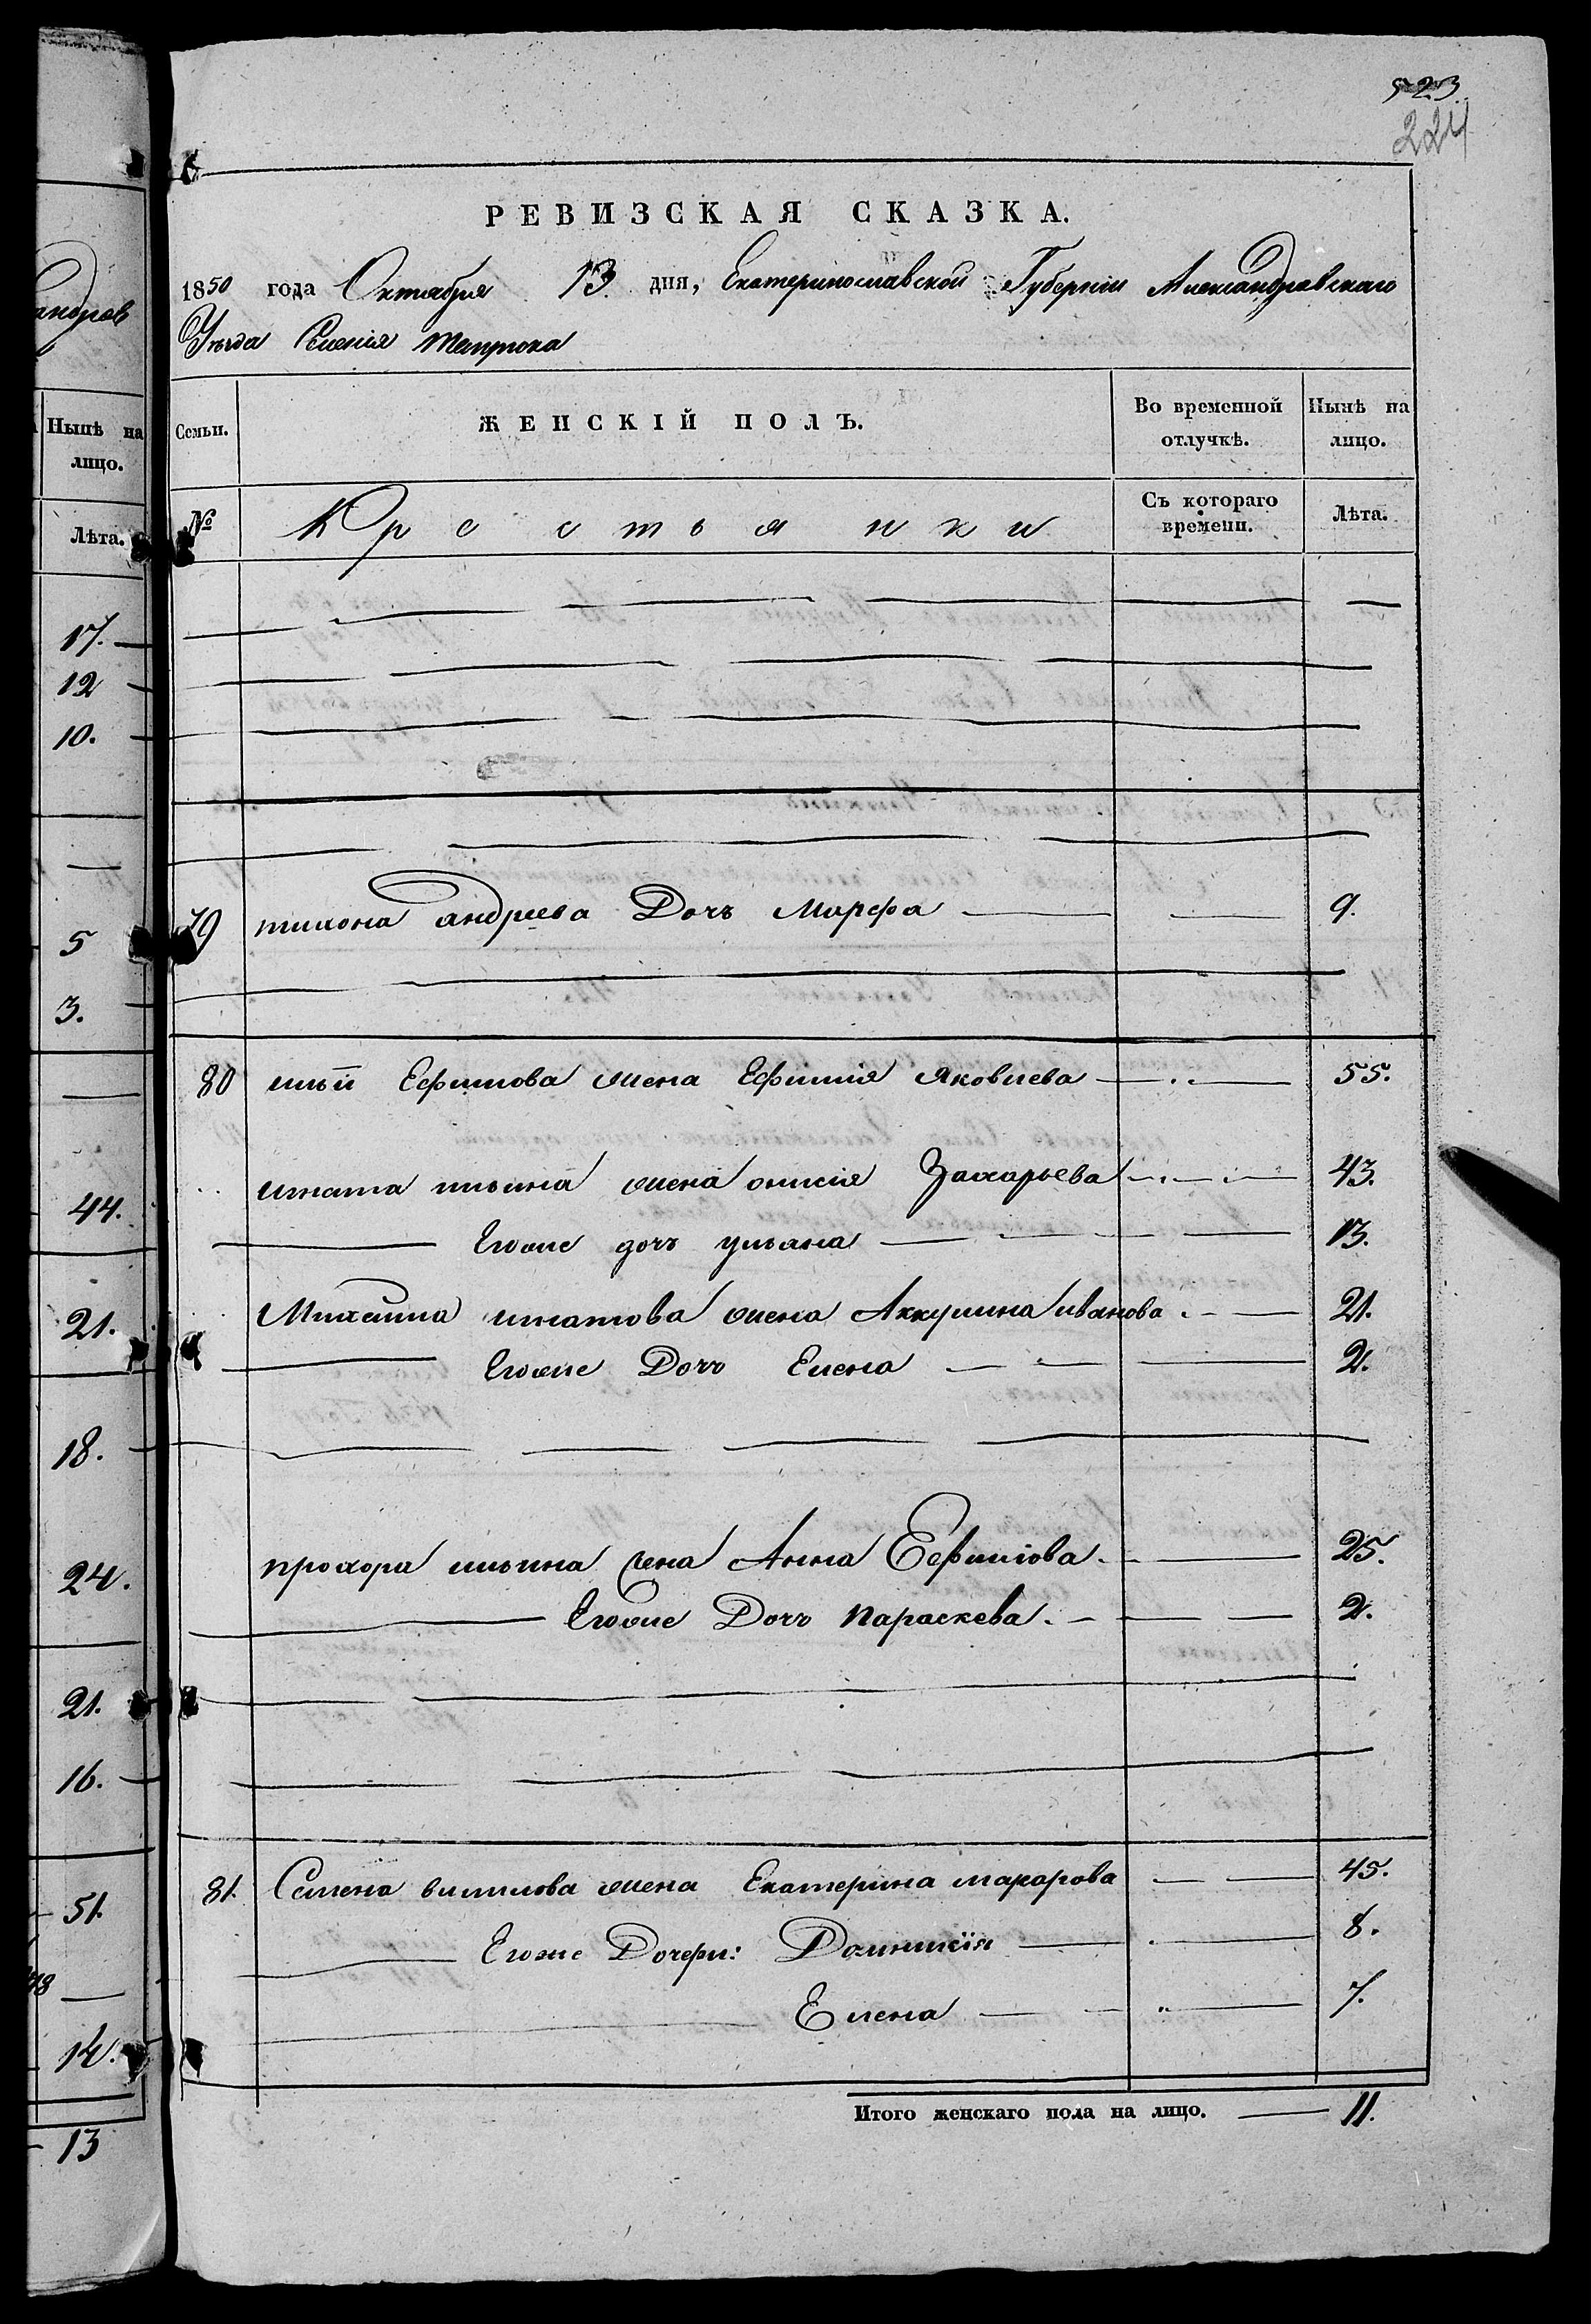 андров
Нынѣ на
лицо.
Лѣта.
17.
12
10.
5
3.
44.
21.
18.
24.
21.
16.
51.
14.
13
523
224
РЕВИЗСКАЯ СКАЗКА.
1850 года Октября 13 дня, Екатеринославской Губернии Александровскаго
Уѣзда Селенія Темрюка
Семьи. ЖЕНСКІЙ ПОЛЪ. Во временной отлучкѣ. Нынѣ на лицо.
№ Крестьянки Съ котораго времени. Лѣта.
79 тихона андреева Дочъ Марфа 9.
80 ильи Ефимова жена Ефимія Яковлева 55.
игната ильина жена онисія Захарьева 43.
Егоже дочъ ульана 13.
Михаила игнатова жена Аккулина иванова 21.
Егоже Дочъ Елена 2.
прохора ильина жена Анна Ефимова 25.
Егоже Дочъ Параскева. 2.
81. Семена вишлова жена Екатерина макарова 45.
Егоже Дочери: Домникія 8.
Елена 7.
Итого женскаго пола на лицо. 11.